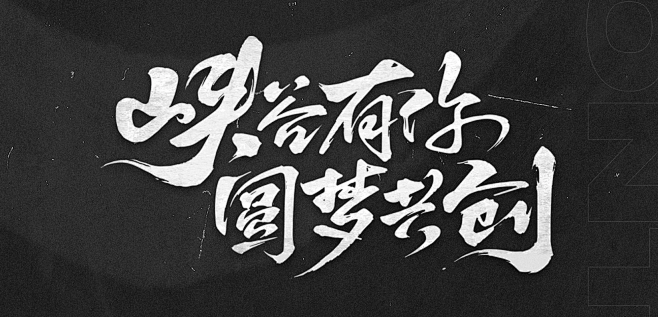 峡谷有你
圆梦共创